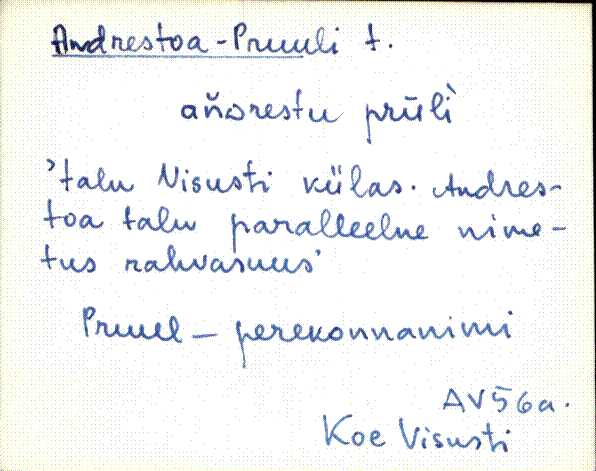 Andrestoa-Pruuli t.
ańᴅrestu prūlì
'talu Visusti külas. Andres-
toa talu paralleelne nime-
tus rahvasuus'
Pruul – perekonnanimi
AV56a.
Koe Visusti